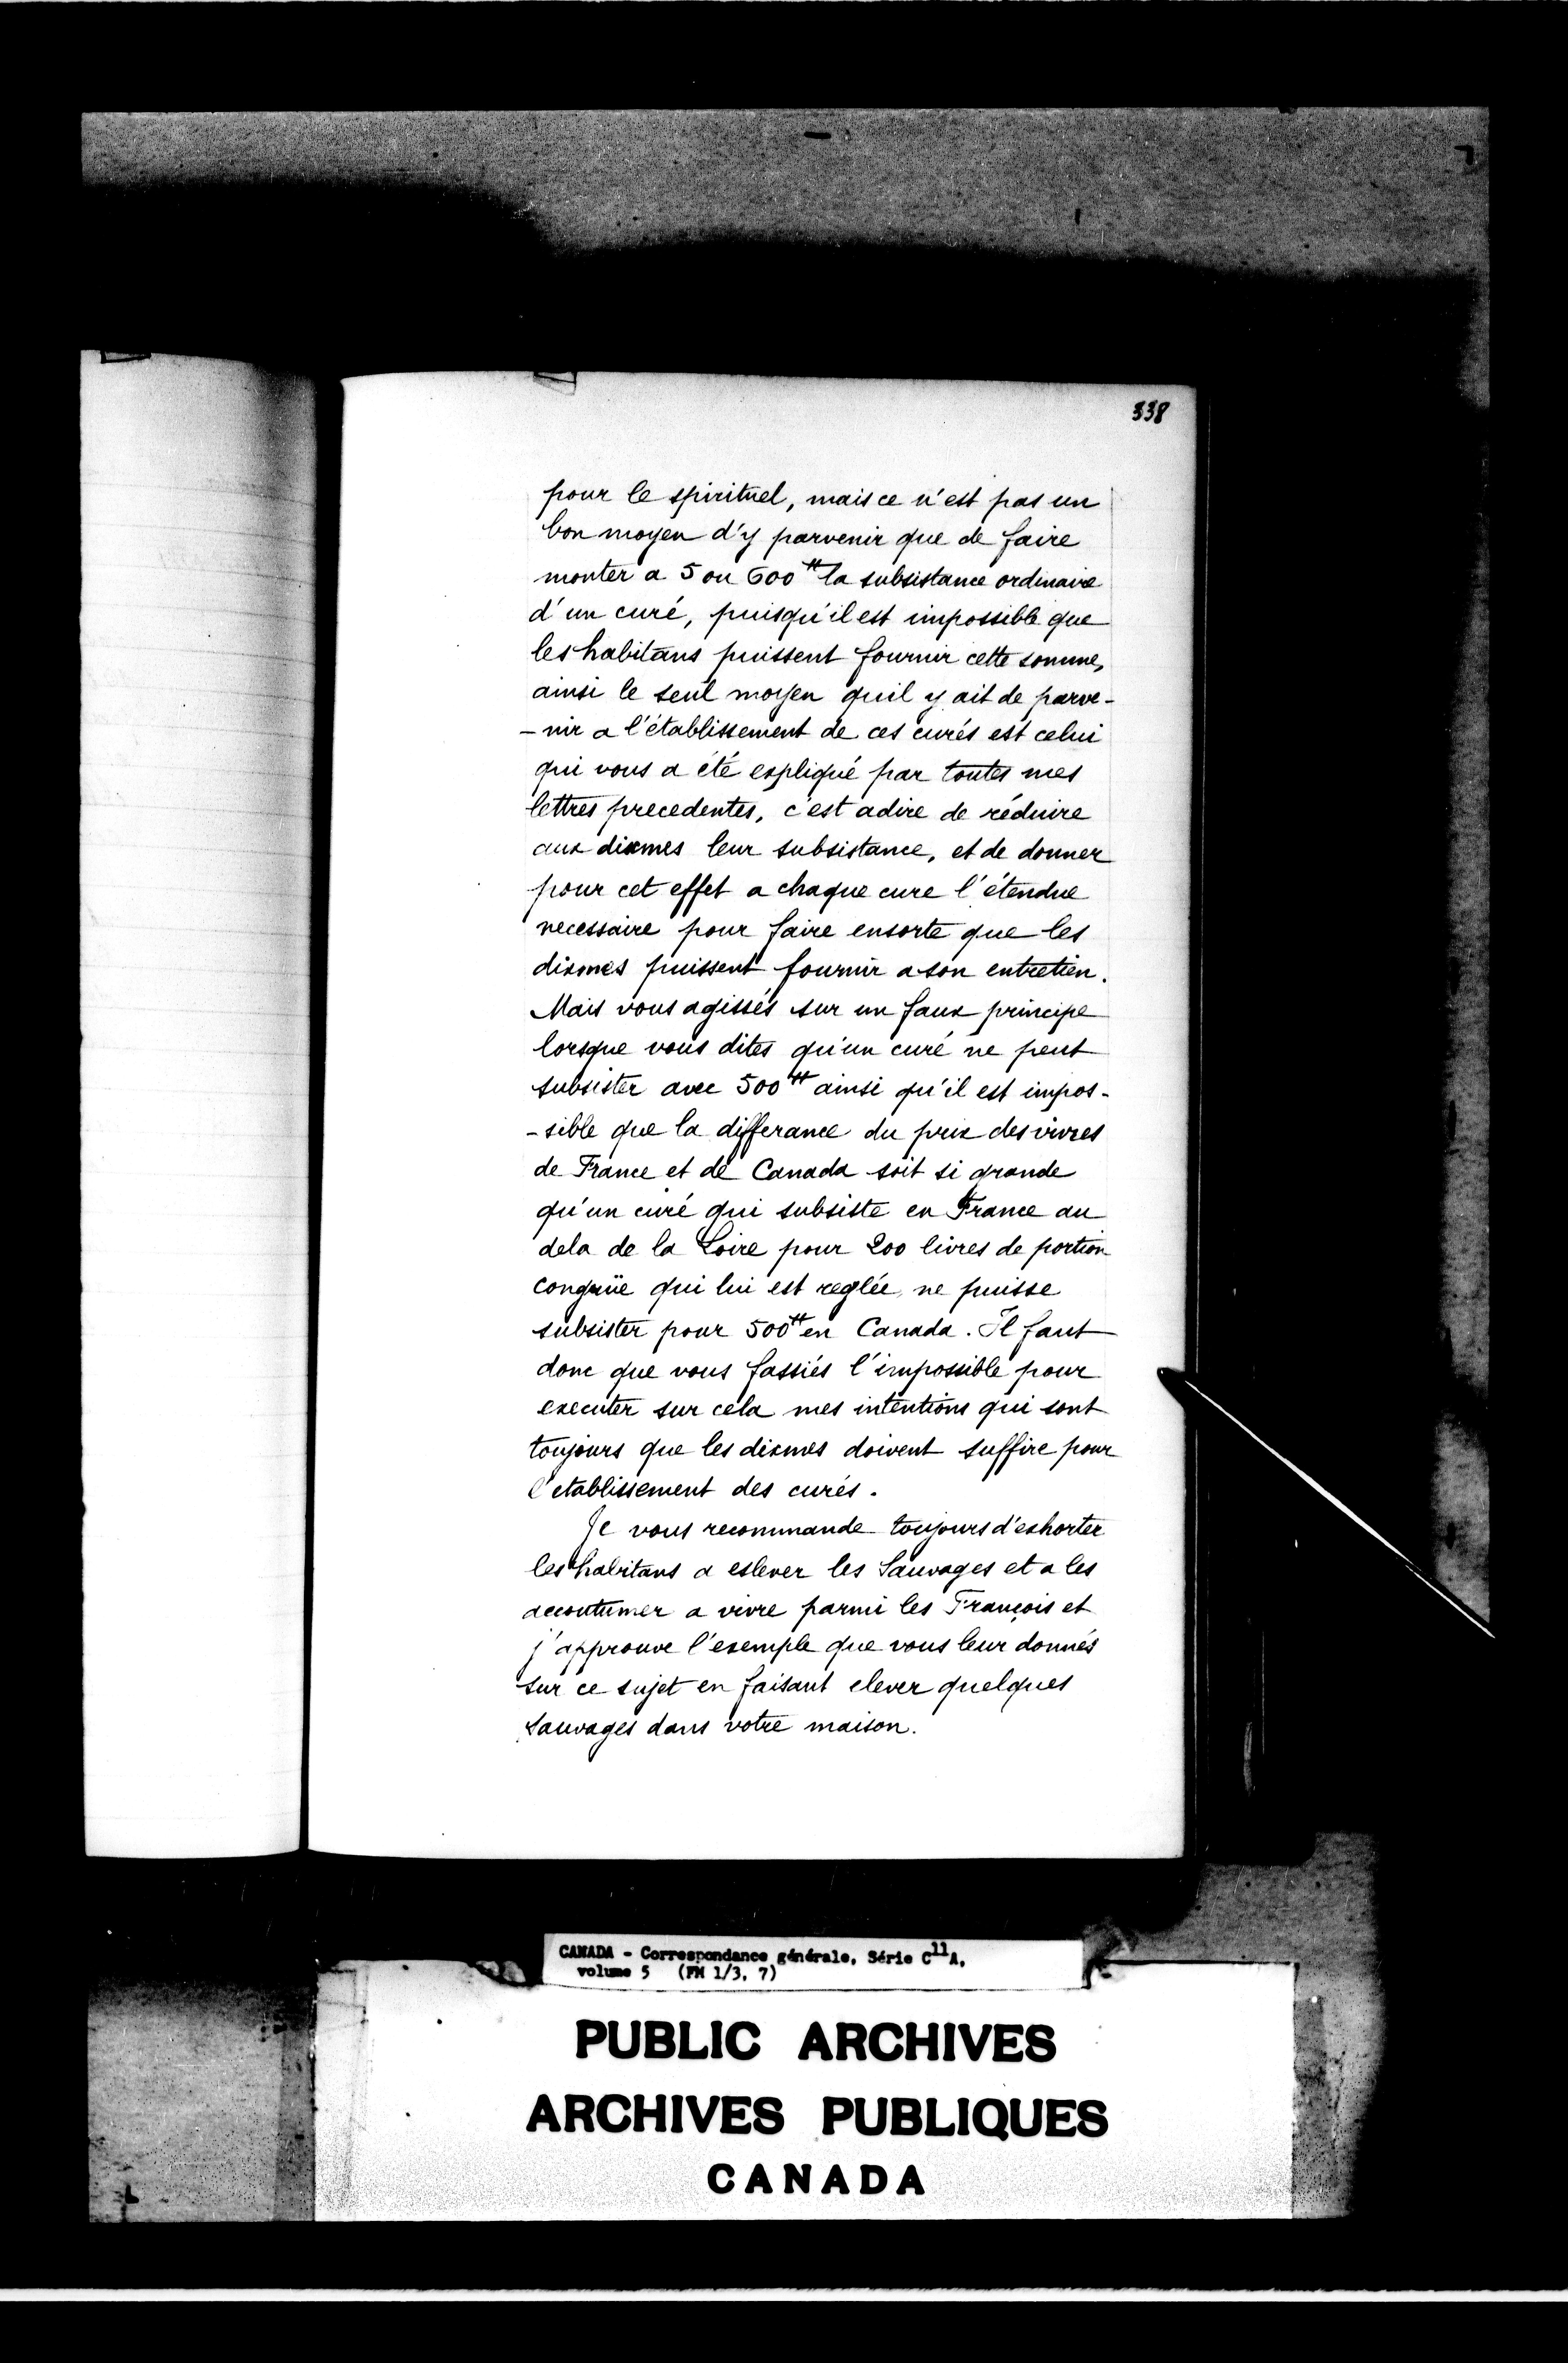 338
pour le spirituel, mais ce n'est pas un
bon moyen d'y parvenir que de faire
monter a 5 ou 600ᵗᵗ la subsistance ordinaire
d'un curé, puisqu'il est impossible que
les habitans puissent fournir cette somme,
ainsi le seul moyen quil y ait de parve-
-nir a l'établissement de ces curés est celui
qui vous a été expliqué par toutes mes
lettres precedentes, c'est adire de réduire
aux dixmes leur subsistance, et de donner
pour cet effet a chaque cure l'étendue
necessaire pour faire ensorte que les
dixmes puissent fournir a son entretien.
Mais vous agissés sur un faux principe
lorsque vous dites qu'un curé ne peut
subsister avec 500ᵗᵗ ainsi qu'il est impos-
-sible que la differance du prix des vivres
de France et de Canada soit si grande
qu'un curé qui subsiste en France au
dela de la Loire pour 200 livres de portion
congrüe qui lui est reglée, ne puisse
subsister pour 500ᵗᵗ en Canada. Il faut
donc que vous fassiés l'impossible pour
executer sur cela mes intentions qui sont
toujours que les dixmes doivent suffire pour
l'etablissement des curés.
Je vous recommande toujours d'exhorter
les habitans a eslever les Sauvages et a les
accoutumer a vivre parmi les François et
j'approuve l'exemple que vous leur donnés
sur ce sujet en faisant elever quelques
Sauvages dans votre maison.
CANADA - Correspondance générale, Série C¹¹A,
volume 5 (FM 1/3, 7)
PUBLIC ARCHIVES
ARCHIVES PUBLIQUES
CANADA